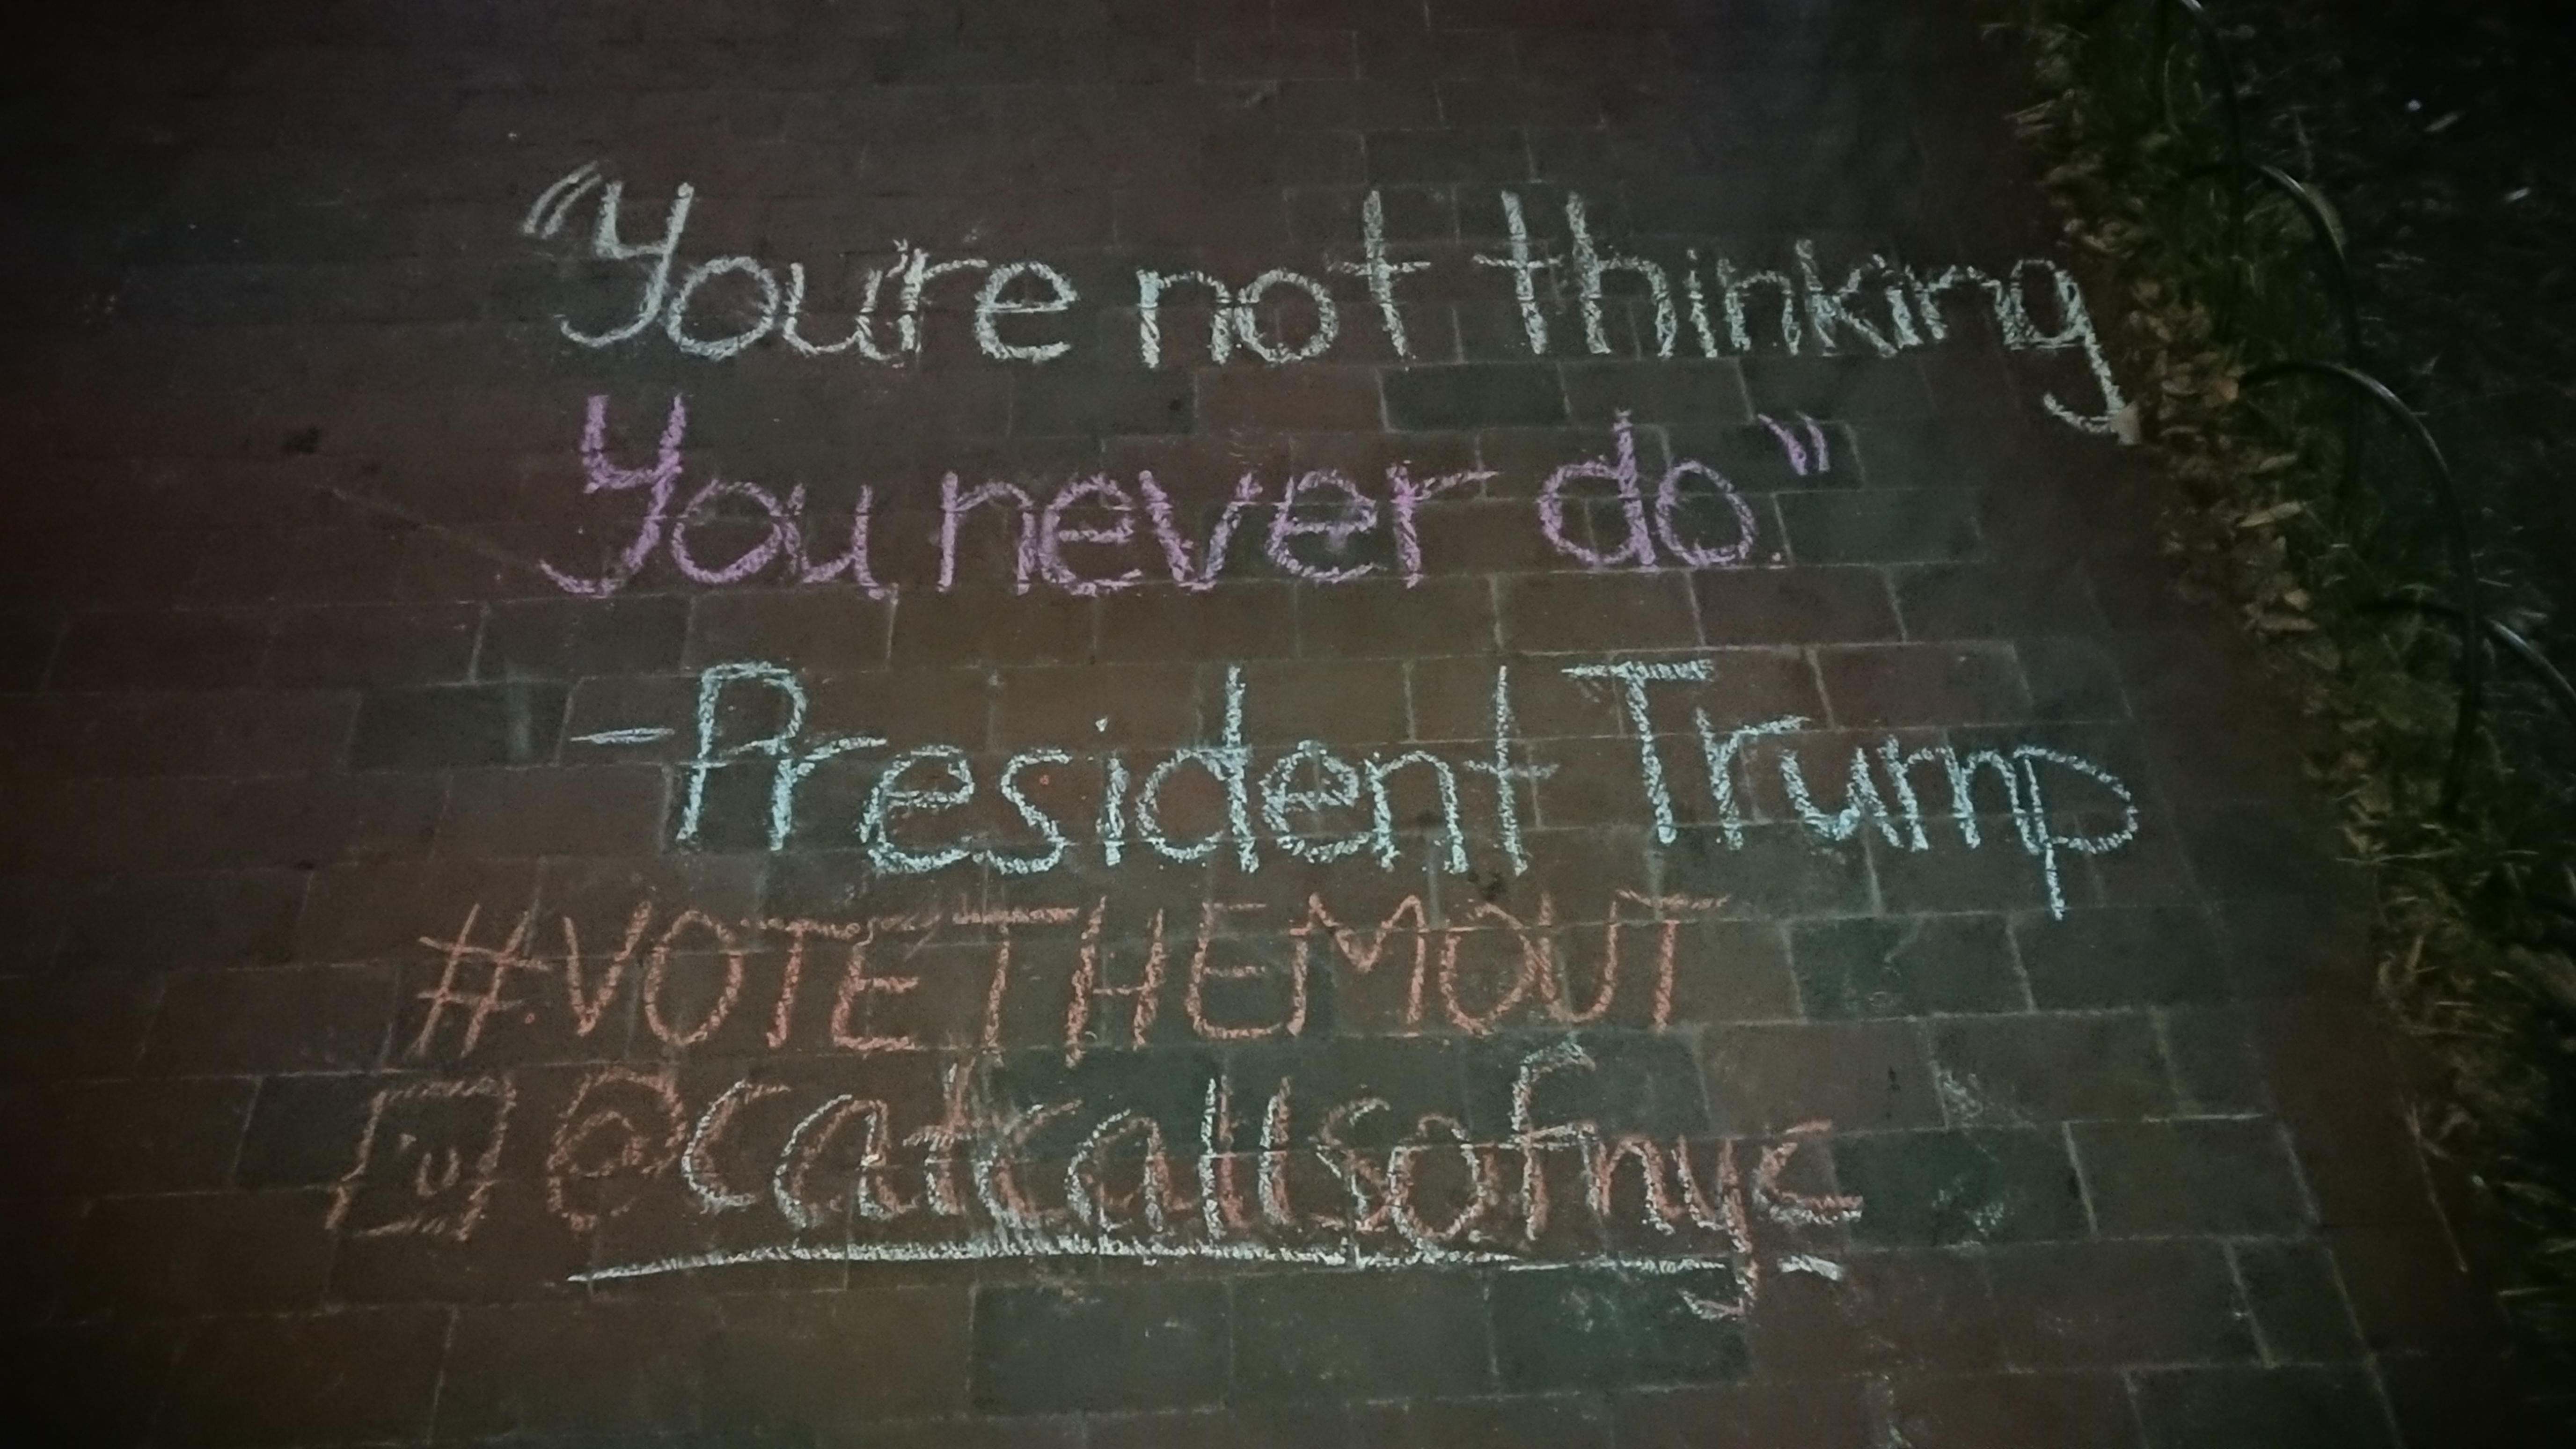 "You're not thinking
You never do."
-President Trump
#VOTETHEMOUT
@catcallsofnyc